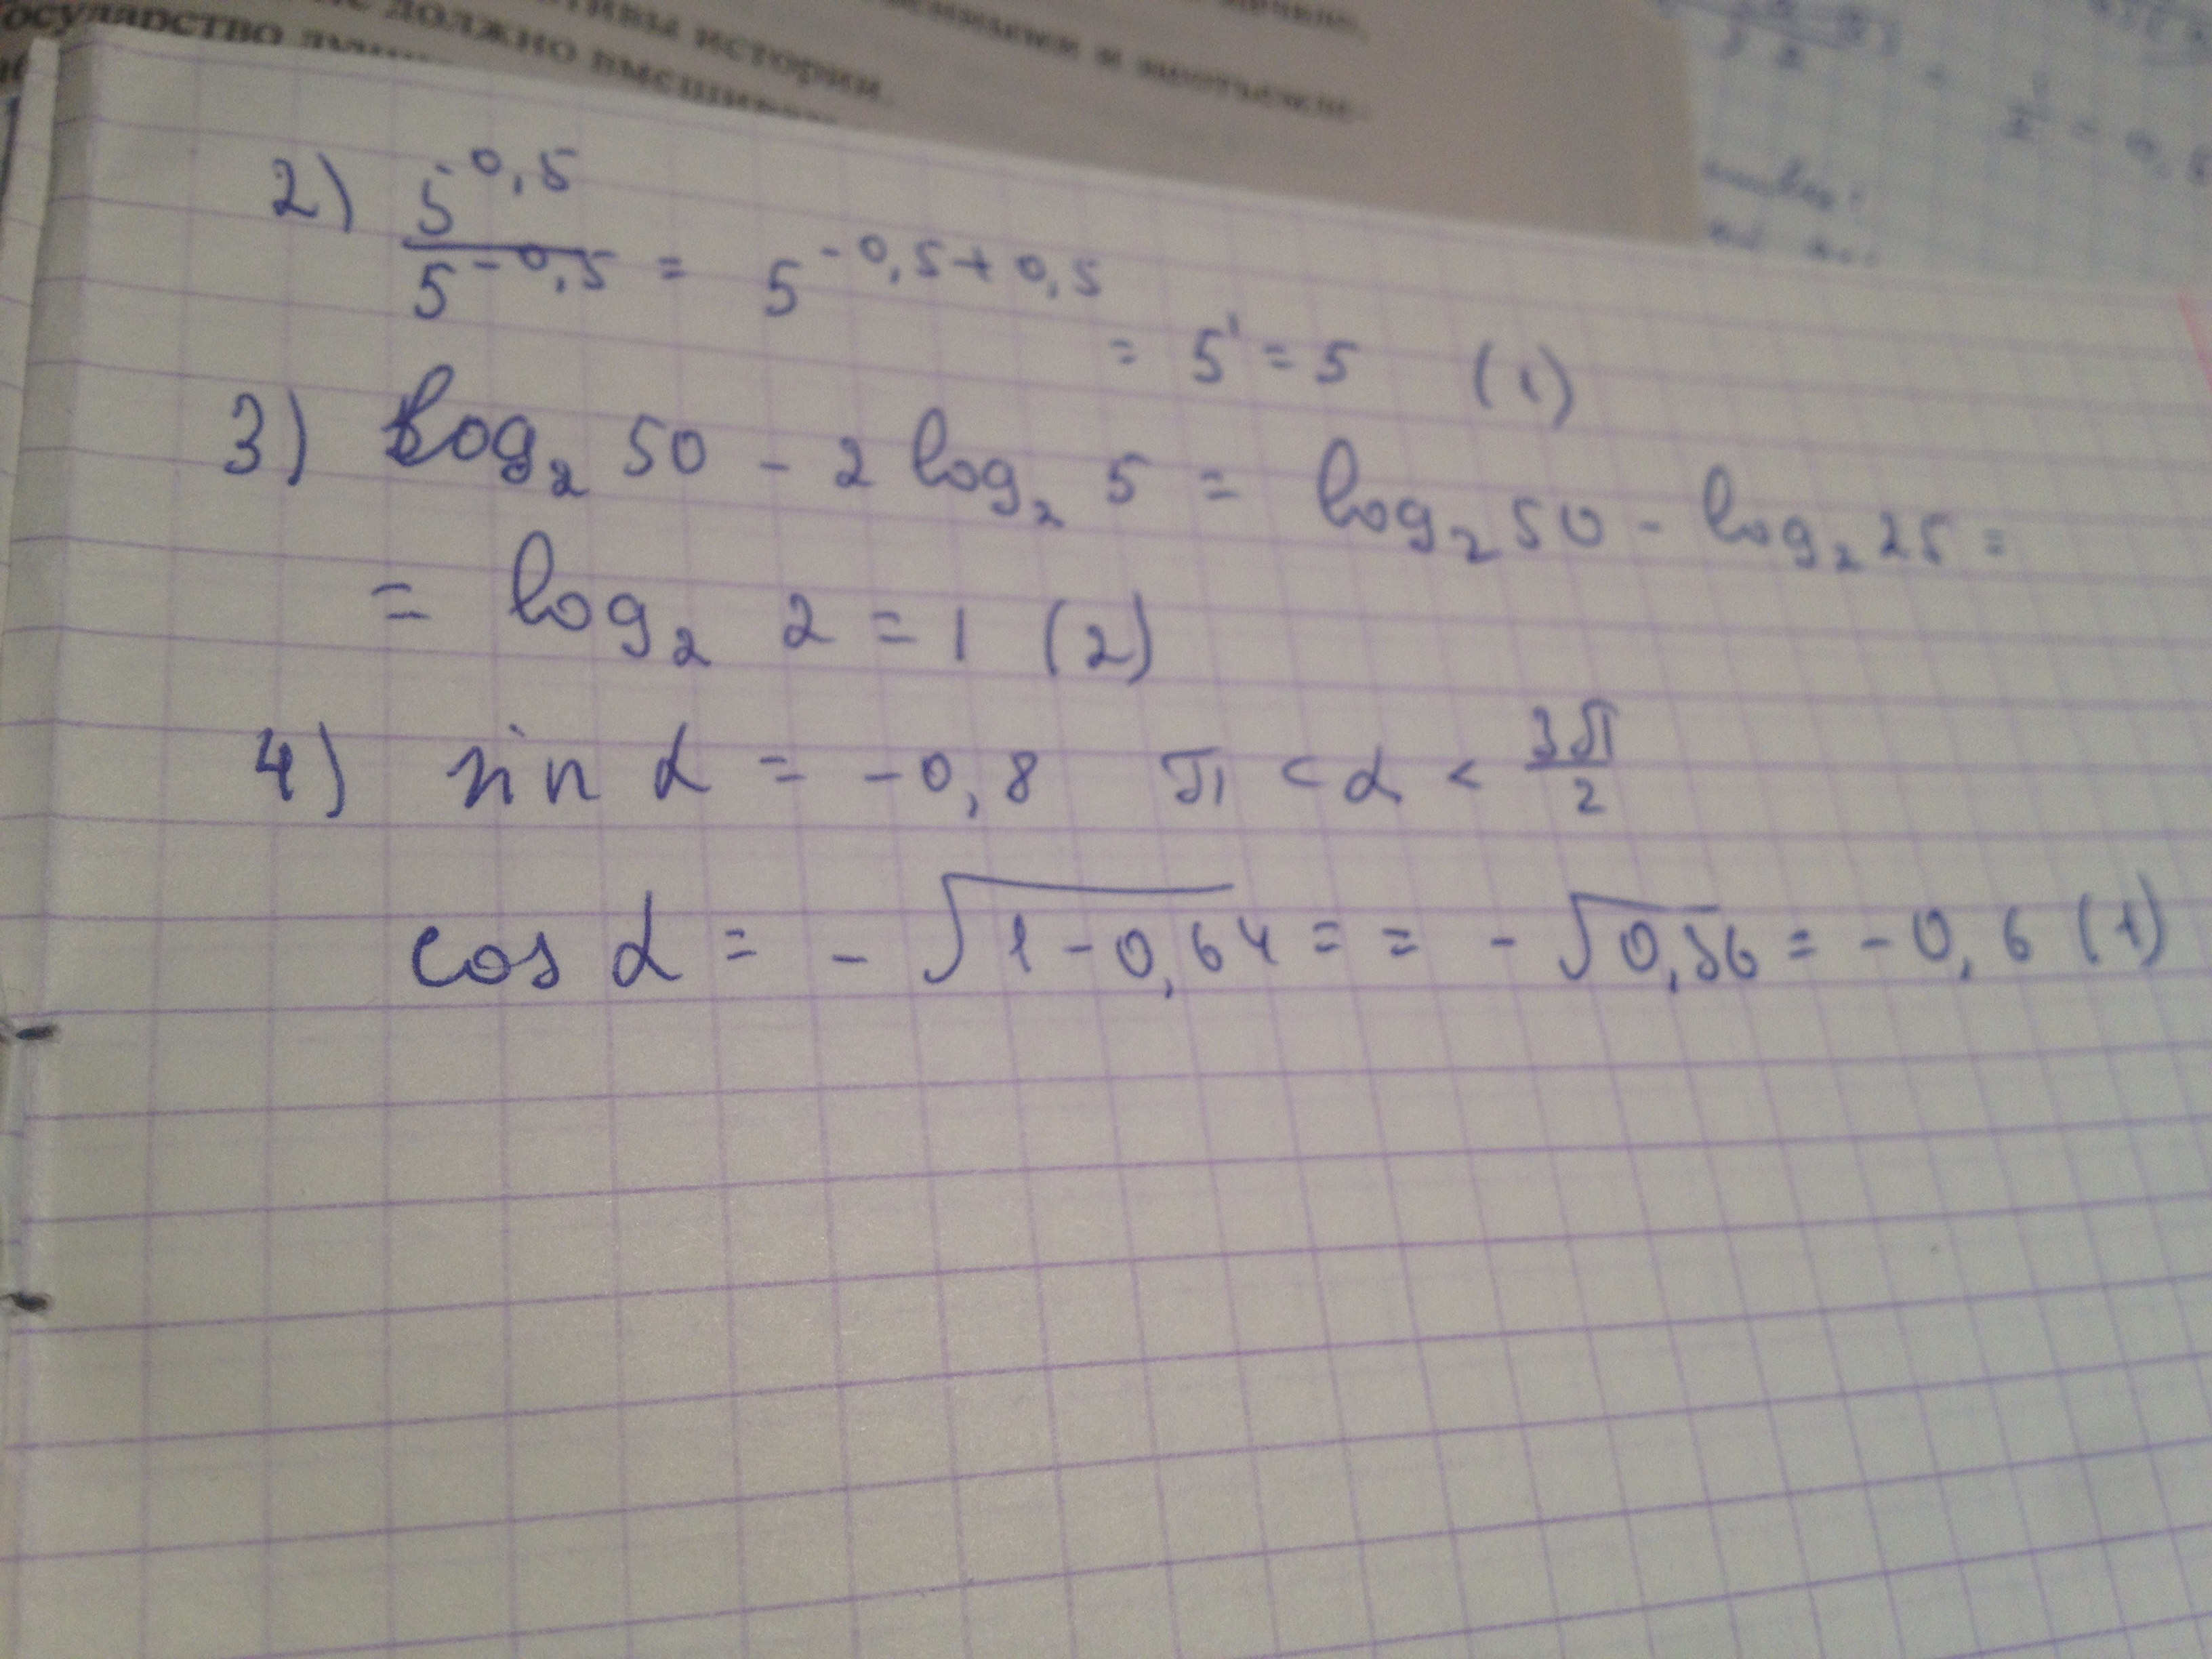 осударство
не должно вмешив
тивы истории.
2) 5^0,5 / 5^-0,5 = 5^-0,5+0,5
= 5^1 = 5 (1)
3) log₂ 50 - 2 log₂ 5 = log₂ 50 - log₂ 25 =
= log₂ 2 = 1 (2)
4) sin α = -0,8 π < α < 3π/2
cos α = - √1-0,64 = = - √0,36 = -0,6 (1)